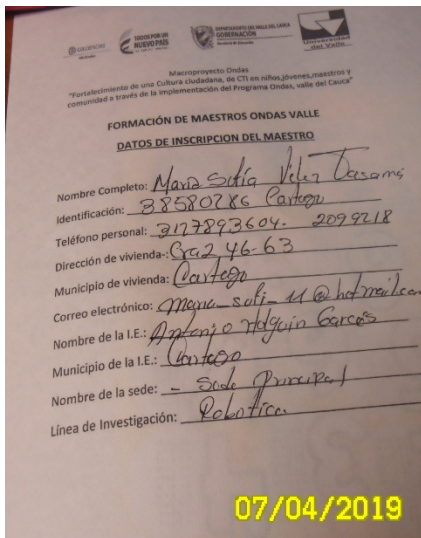 colciencias
TODOS POR UN
NUEVO PAÍS
DEPARTAMENTO DEL VALLE DEL CAUCA
GOBERNACIÓN
Secretaría de Educación
Universidad
del Valle
Macroproyecto Ondas
"Fortalecimiento de una Cultura ciudadana, de CTI en niños,jóvenes,maestros y
comunidad a través de la implementación del Programa Ondas, valle del Cauca"
FORMACIÓN DE MAESTROS ONDAS VALLE
DATOS DE INSCRIPCION DEL MAESTRO
Nombre Completo: Maria Sofía Velez
Identificación: 38580286 Cartago
Teléfono personal: 3127893604. 2099218
Dirección de vivienda-: Cra2 46-63
Municipio de vivienda: Cartago
Correo electrónico: maria_sofi_11@hotmail.com
Nombre de la I.E.: Antonio Holguin Garcés
Municipio de la I.E.: Cartago
Nombre de la sede: - Sede Principal
Línea de Investigación: Robotica.
07/04/2019